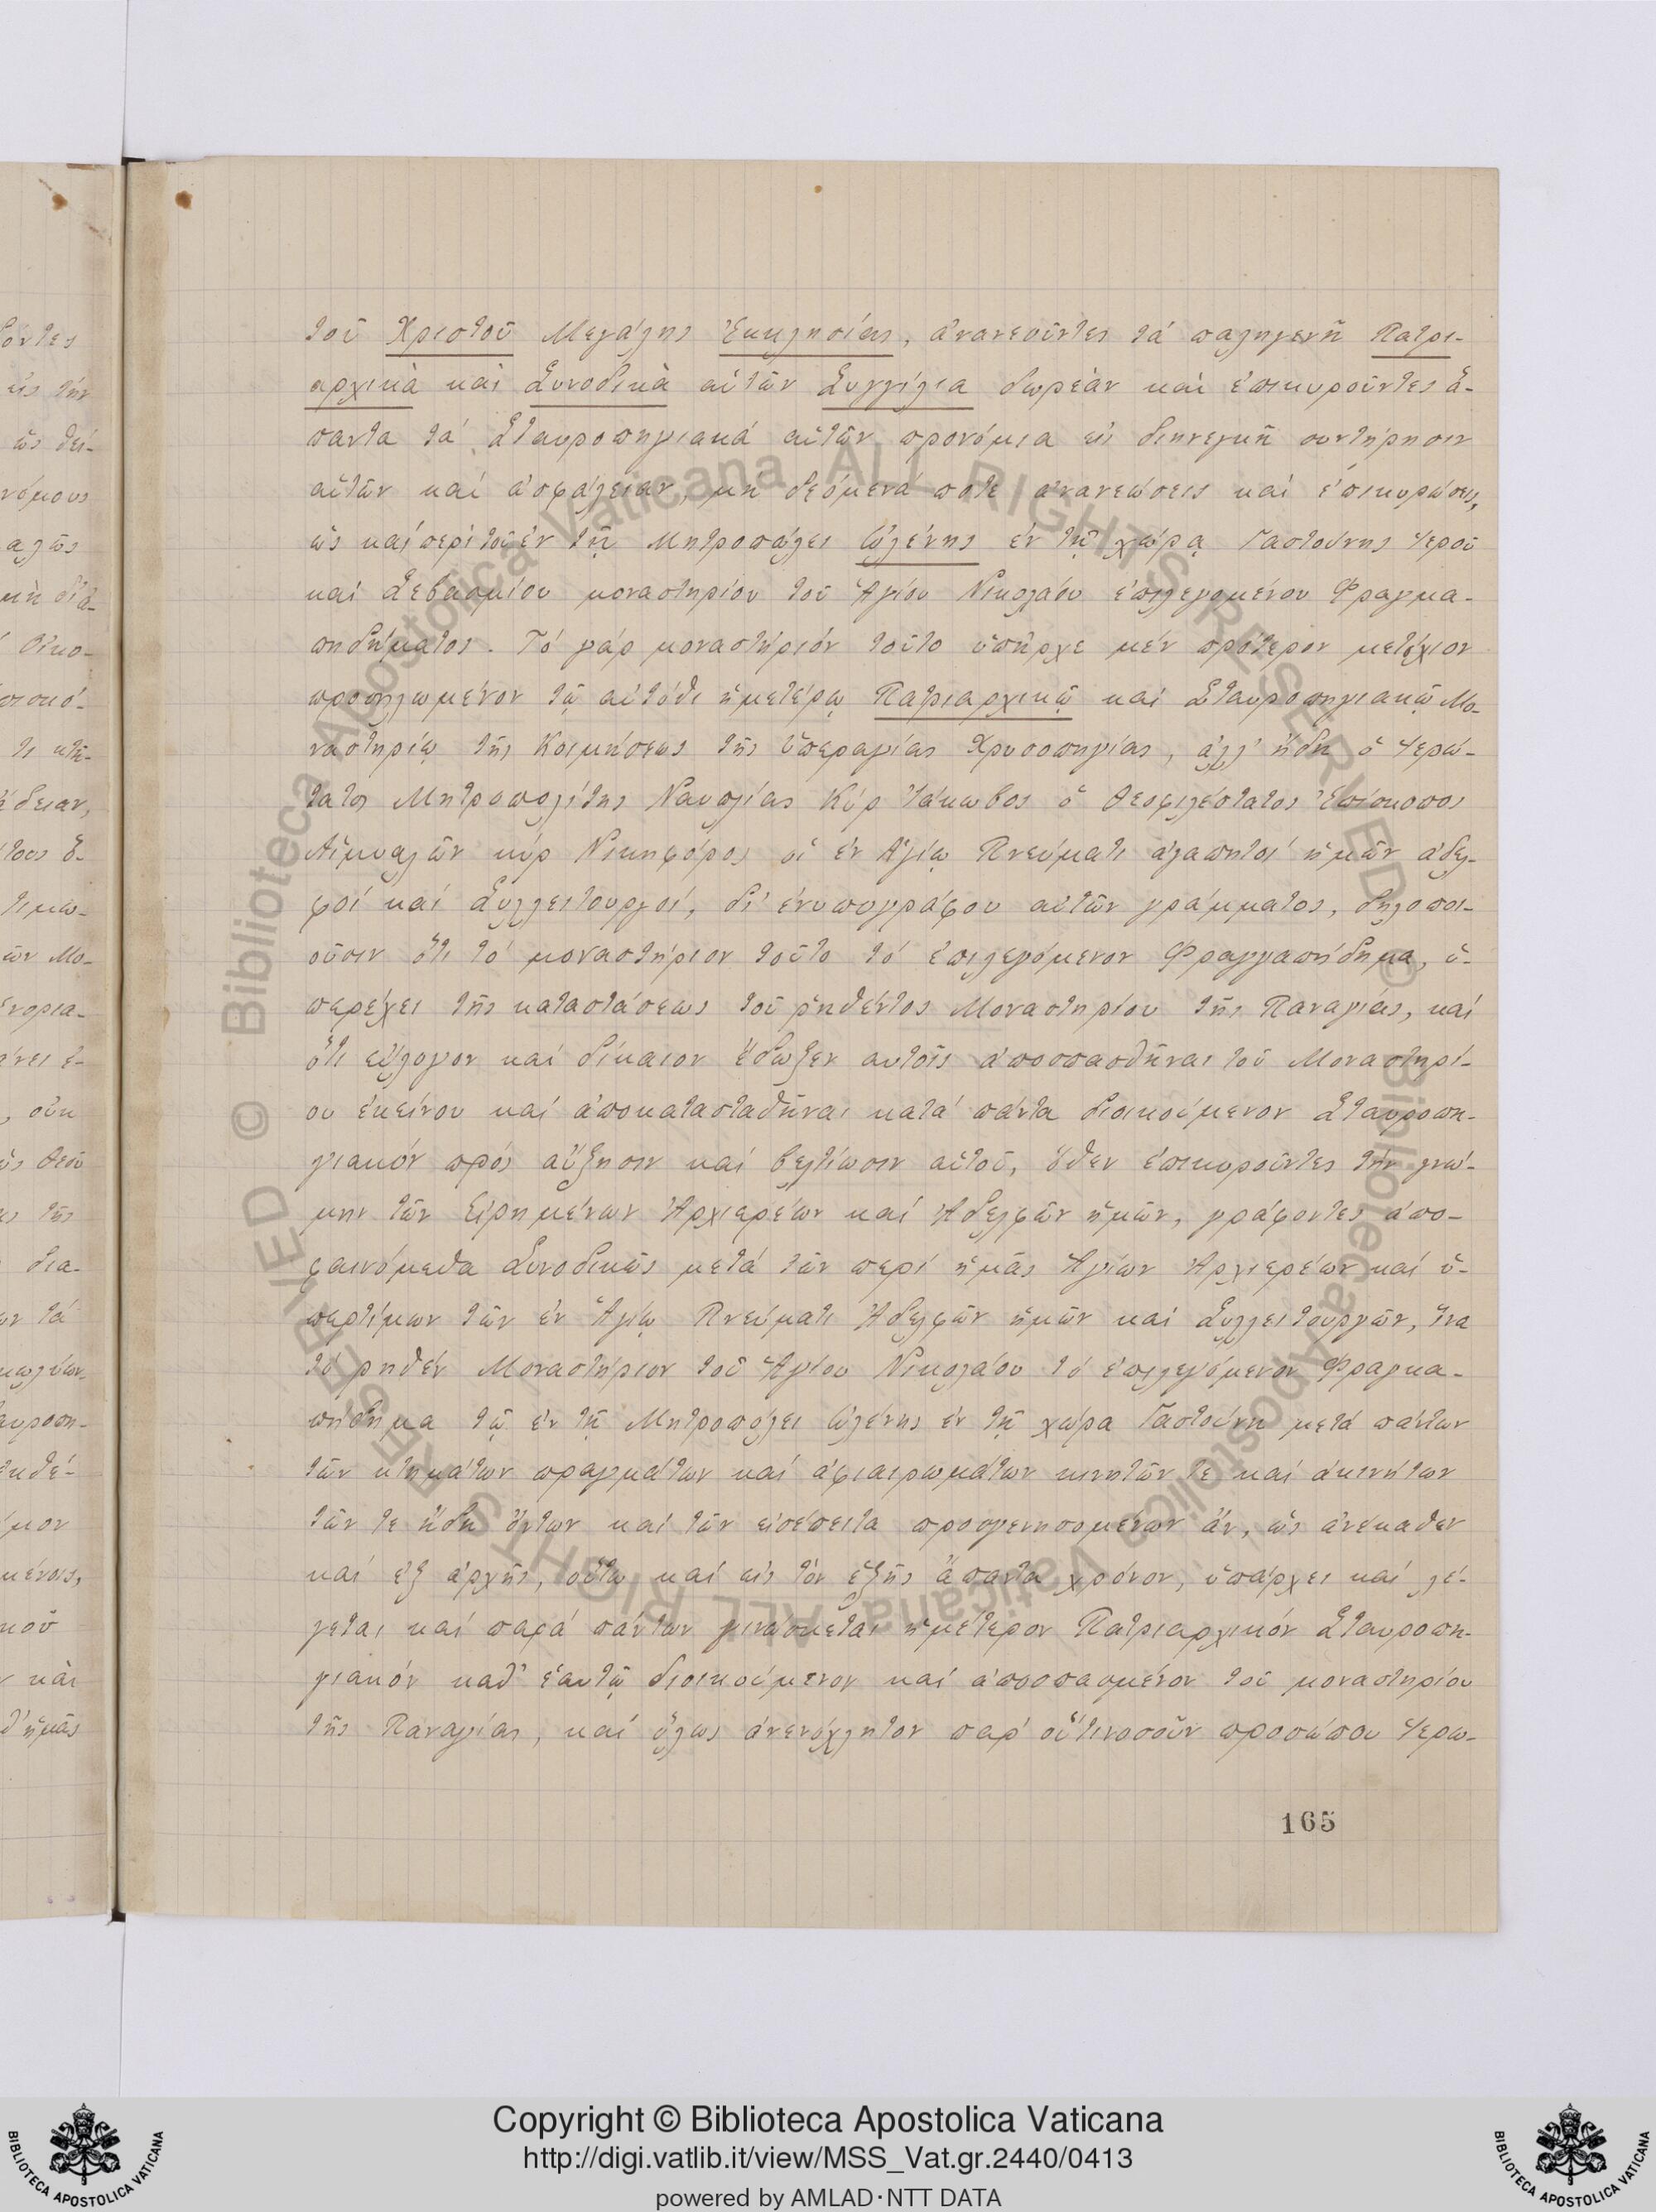 τοῦ Χριστοῦ Μεγάλης Ἐκκλησίας, ἀνανεοῦντες τά παλῃγενῆ Πατρι-
αρχικὰ καὶ Συνοδικὰ αὐτῶν Συγγίλια δωρεὰν καὶ ἐπικυροῦντες ἅ-
παντα τά Σταυροπηγιακά αὐτῶν προνόμια εἰς διηνεχκῆ συντήρησιν
αὐτῶν καί ἀσφάλειαν, μή δεόμενά ποτε ἀνανεώσεις καί ἐπικυρώσεις,
ὡς καί περί τοῦ ἐν τῇ Μητροπόλει Ὠλένης ἐν τῇ χώρᾳ Γαστούνης Ἱεροῦ
καί Σεβασμίου μοναστηρίου τοῦ Ἁγίου Νικολάου ἐπιλεγομένου Φραγκα-
πηδήματος. Τό γάρ μοναστήριόν τοῦτο ὑπῆρχε μέν πρότερον μετόχιον
προσηλωμένον τῷ αὐτόθι ἡμετέρῳ Πατριαρχικῷ καί Σταυροπηγιακῷ Μο-
ναστηρίῳ τῆς Κοιμήσεως τῆς Ὑπεραγίας Χρυσοπηγίας, ἀλλ' ἤδη ὁ Ἱερώ-
τατος Μητροπολίτης Ναυπλίας Κύρ Ἰάκωβος ὁ Θεοφιλέστατος Ἐπίσκοπος
Αἰμυαλῶν κύρ Νικηφόρος οἱ ἐν Ἁγίῳ Πνεύματι ἀγαπητοί ἡμῶν ἀδελ-
φοί καί Συλλειτουργοί, δι' ἐνυπογράφου αὐτῶν γράμματος, δηλοποι-
οῦσιν ὅτι τό μοναστήριον τοῦτο τό ἐπιλεγόμενον Φραγγαπήδημα, ὑ-
περέχει τῆς καταστάσεως τοῦ ῥηθέντος Μοναστηρίου τῆς Παναγίας, καί
ὅτι εὔλογον καί δίκαιον ἔδωξεν αυτοῖς ἀποσπασθῆναι τοῦ Μοναστηρί-
ου ἐκείνου καί ἀποκατασταθῆναι κατά πάντα διοικούμενον Σταυροπη-
γιακόν πρός αὔξησιν καί βελτίωσιν αὐτοῦ, ὅθεν ἐπικυροῦντες τήν γνώ-
μην τῶν Εἰρημένων Ἀρχιερέων καί Ἀδελφῶν ἡμῶν, γράφοντες ἀπο-
φαινόμεθα Συνοδικῶς μετά τῶν περί ἡμᾶς Ἁγίων Ἀρχιερέων καί ὑ-
περτίμων τῶν ἐν Ἁγίῳ Πνεύματι Ἀδελφῶν ἡμῶν καί Συλλειτουργῶν, ἵνα
τό ρηθέν Μοναστήριον τοῦ Ἁγίου Νικολάου τό ἐπιλεγόμενον Φραγκα-
πήδημα τῷ ἐν τῇ Μητροπόλει Ὠλένης ἐν τῇ χώρα Γαστούνη μετά πάντων
τῶν κτημάτων πραγμάτων καί ἀφιαιρωμάτων κινητῶν τε καί ἀκινήτων
τῶν τε ἤδη ὄντων καί τῶν εἰσέπειτα προσγενησομένων ἄν, ὡς ἀνέκαθεν
καί ἐξ ἀρχῆς, οὕτω καί εἰς τόν ἑξῆς ἅπαντα χρόνον, ὑπάρχει καί λέ-
γεται καί παρά πάντων γινώσκεται ἡμέτερον Πατριαρχικόν Σταυροπη-
γιακόν καθ' ἑαυτῷ διοικούμενον καί ἀποσπασμένον τοῦ μοναστηρίου
τῆς Παναγίας, καί ὅλως ἀνενόχλητον παρ' οὑτινοσοῦν προσώπου Ἱερω-
165
Copyright © Biblioteca Apostolica Vaticana
http://digi.vatlib.it/view/MSS_Vat.gr.2440/0413
powered by AMLAD·NTT DATA